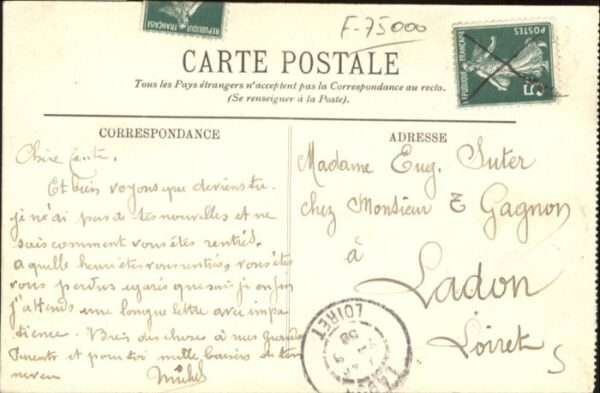 F-75000
POSTES
RÉPUBLIQUE FRANÇAISE
5c
CARTE POSTALE
Tous les Pays étrangers n'acceptent pas la Correspondance au recto.
(Se renseigner à la Poste).
CORRESPONDANCE
Chère tante,
Et bien voyons que deviens tu.
je n'ai pas de tes nouvelles et ne
sais comment vous êtes rentrés.
a quelle heure êtes vous rentrés, vous êtes
vous perdus egarés que sais je enfin
j'attends une longue lettre avec impa
tience. Bien des choses à mes Grands
Parents et pour toi mille baisers de ton
neveu
Michel
ADRESSE
Madame Eug. Suter
chez Monsieur E Gagnon
à
Ladon
Loiret
LOIRET